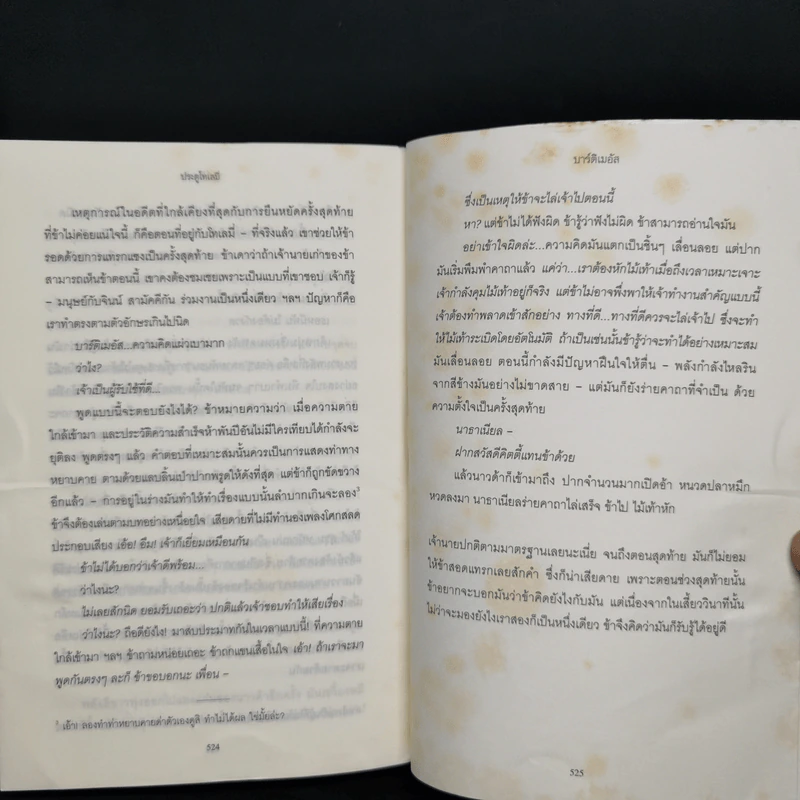 ประตูโทเลมี
เหตุการณ์ในอดีตที่ใกล้เคียงที่สุดกับการยืนหยัดครั้งสุดท้าย
ที่ข้าไม่ค่อยแน่ใจนี้ ก็คือตอนที่อยู่กับโทเลมี่ – ที่จริงแล้ว เขาช่วยให้ข้า
รอดด้วยการแทรกแซงเป็นครั้งสุดท้าย ข้าเดาว่าถ้าเจ้านายเก่าของข้า
สามารถเห็นข้าตอนนี้ เขาคงต้องชมเชยเพราะเป็นแบบที่เขาชอบ เจ้าก็รู้
– มนุษย์กับจินน์ สามัคคีกัน ร่วมงานเป็นหนึ่งเดียว ฯลฯ ปัญหาก็คือ
เราทำตรงตามตัวอักษรเกินไปนิด
บาร์ติเมอัส...ความคิดแผ่วเบามาก
ว่าไง?
เจ้าเป็นผู้รับใช้ที่ดี...
พูดแบบนี้จะตอบยังไงได้? ข้าหมายความว่า เมื่อความตาย
ใกล้เข้ามา และประวัติความสำเร็จห้าพันปีอันไม่มีใครเทียบได้กำลังจะ
ยุติลง พูดตรงๆ แล้ว คำตอบที่เหมาะสมนั้นควรเป็นการแสดงท่าทาง
หยาบคาย ตามด้วยแลบลิ้นเป่าปากพรูดให้ดังที่สุด แต่ข้าก็ถูกขัดขวาง
อีกแล้ว – การอยู่ในร่างมันทำให้ทำเรื่องแบบนั้นลำบากเกินจะลอง³
ข้าจึงต้องเล่นตามบทอย่างเหนื่อยใจ เสียดายที่ไม่มีทำนองเพลงโศกสลด
ประกอบเสียง เอ้อ! อืม! เจ้าก็เยี่ยมเหมือนกัน
ข้าไม่ได้บอกว่าเจ้าดีพร้อม...
ว่าไงนะ?
ไม่เลยสักนิด ยอมรับเถอะว่า ปกติแล้วเจ้าชอบทำให้เสียเรื่อง
ว่าไงนะ? ถือดียังไง! มาสบประมาทกันในเวลาแบบนี้! ที่ความตาย
ใกล้เข้ามา ฯลฯ ข้าถามหน่อยเถอะ ข้าถกแขนเสื้อในใจ เอ้า! ถ้าเราจะมา
พูดกันตรงๆ ละก็ ข้าขอบอกนะ เพื่อน –
³ เอ้า! ลองทำท่าหยาบคายด่าตัวเองดูสิ ทำไม่ได้ผล ใช่มั้ยล่ะ?
524
บาร์ติเมอัส
ซึ่งเป็นเหตุให้ข้าจะไล่เจ้าไปตอนนี้
หา? แต่ข้าไม่ได้ฟังผิด ข้ารู้ว่าฟังไม่ผิด ข้าสามารถอ่านใจมัน
อย่าเข้าใจผิดล่ะ...ความคิดมันแตกเป็นชิ้นๆ เลื่อนลอย แต่ปาก
มันเริ่มพึมพำคาถาแล้ว แค่ว่า...เราต้องหักไม้เท้าเมื่อถึงเวลาเหมาะเจาะ
เจ้ากำลังคุมไม้เท้าอยู่ก็จริง แต่ข้าไม่อาจพึ่งพาให้เจ้าทำงานสำคัญแบบนี้
เจ้าต้องทำพลาดเข้าสักอย่าง ทางที่ดี...ทางที่ดีควรจะไล่เจ้าไป ซึ่งจะทำ
ให้ไม้เท้าระเบิดโดยอัตโนมัติ ถ้าเป็นเช่นนั้นข้ารู้ว่าจะทำได้อย่างเหมาะสม
มันเลื่อนลอย ตอนนี้กำลังมีปัญหาฝืนใจให้ตื่น – พลังกำลังไหลริน
จากสีข้างมันอย่างไม่ขาดสาย – แต่มันก็ยังร่ายคาถาที่จำเป็น ด้วย
ความตั้งใจเป็นครั้งสุดท้าย
นาธาเนียล –
ฝากสวัสดีคิตตี้แทนข้าด้วย
แล้วนาวด้าก็เข้ามาถึง ปากจำนวนมากเปิดอ้า หนวดปลาหมึก
หวดลงมา นาธาเนียลร่ายคาถาไล่เสร็จ ข้าไป ไม้เท้าหัก
เจ้านายปกติตามมาตรฐานเลยนะเนี่ย จนถึงตอนสุดท้าย มันก็ไม่ยอม
ให้ข้าสอดแทรกเลยสักคำ ซึ่งก็น่าเสียดาย เพราะตอนช่วงสุดท้ายนั้น
ข้าอยากจะบอกมันว่าข้าคิดยังไงกับมัน แต่เนื่องจากในเสี้ยววินาทีนั้น
ไม่ว่าจะมองยังไงเราสองก็เป็นหนึ่งเดียว ข้าจึงคิดว่ามันก็รับรู้ได้อยู่ดี
525